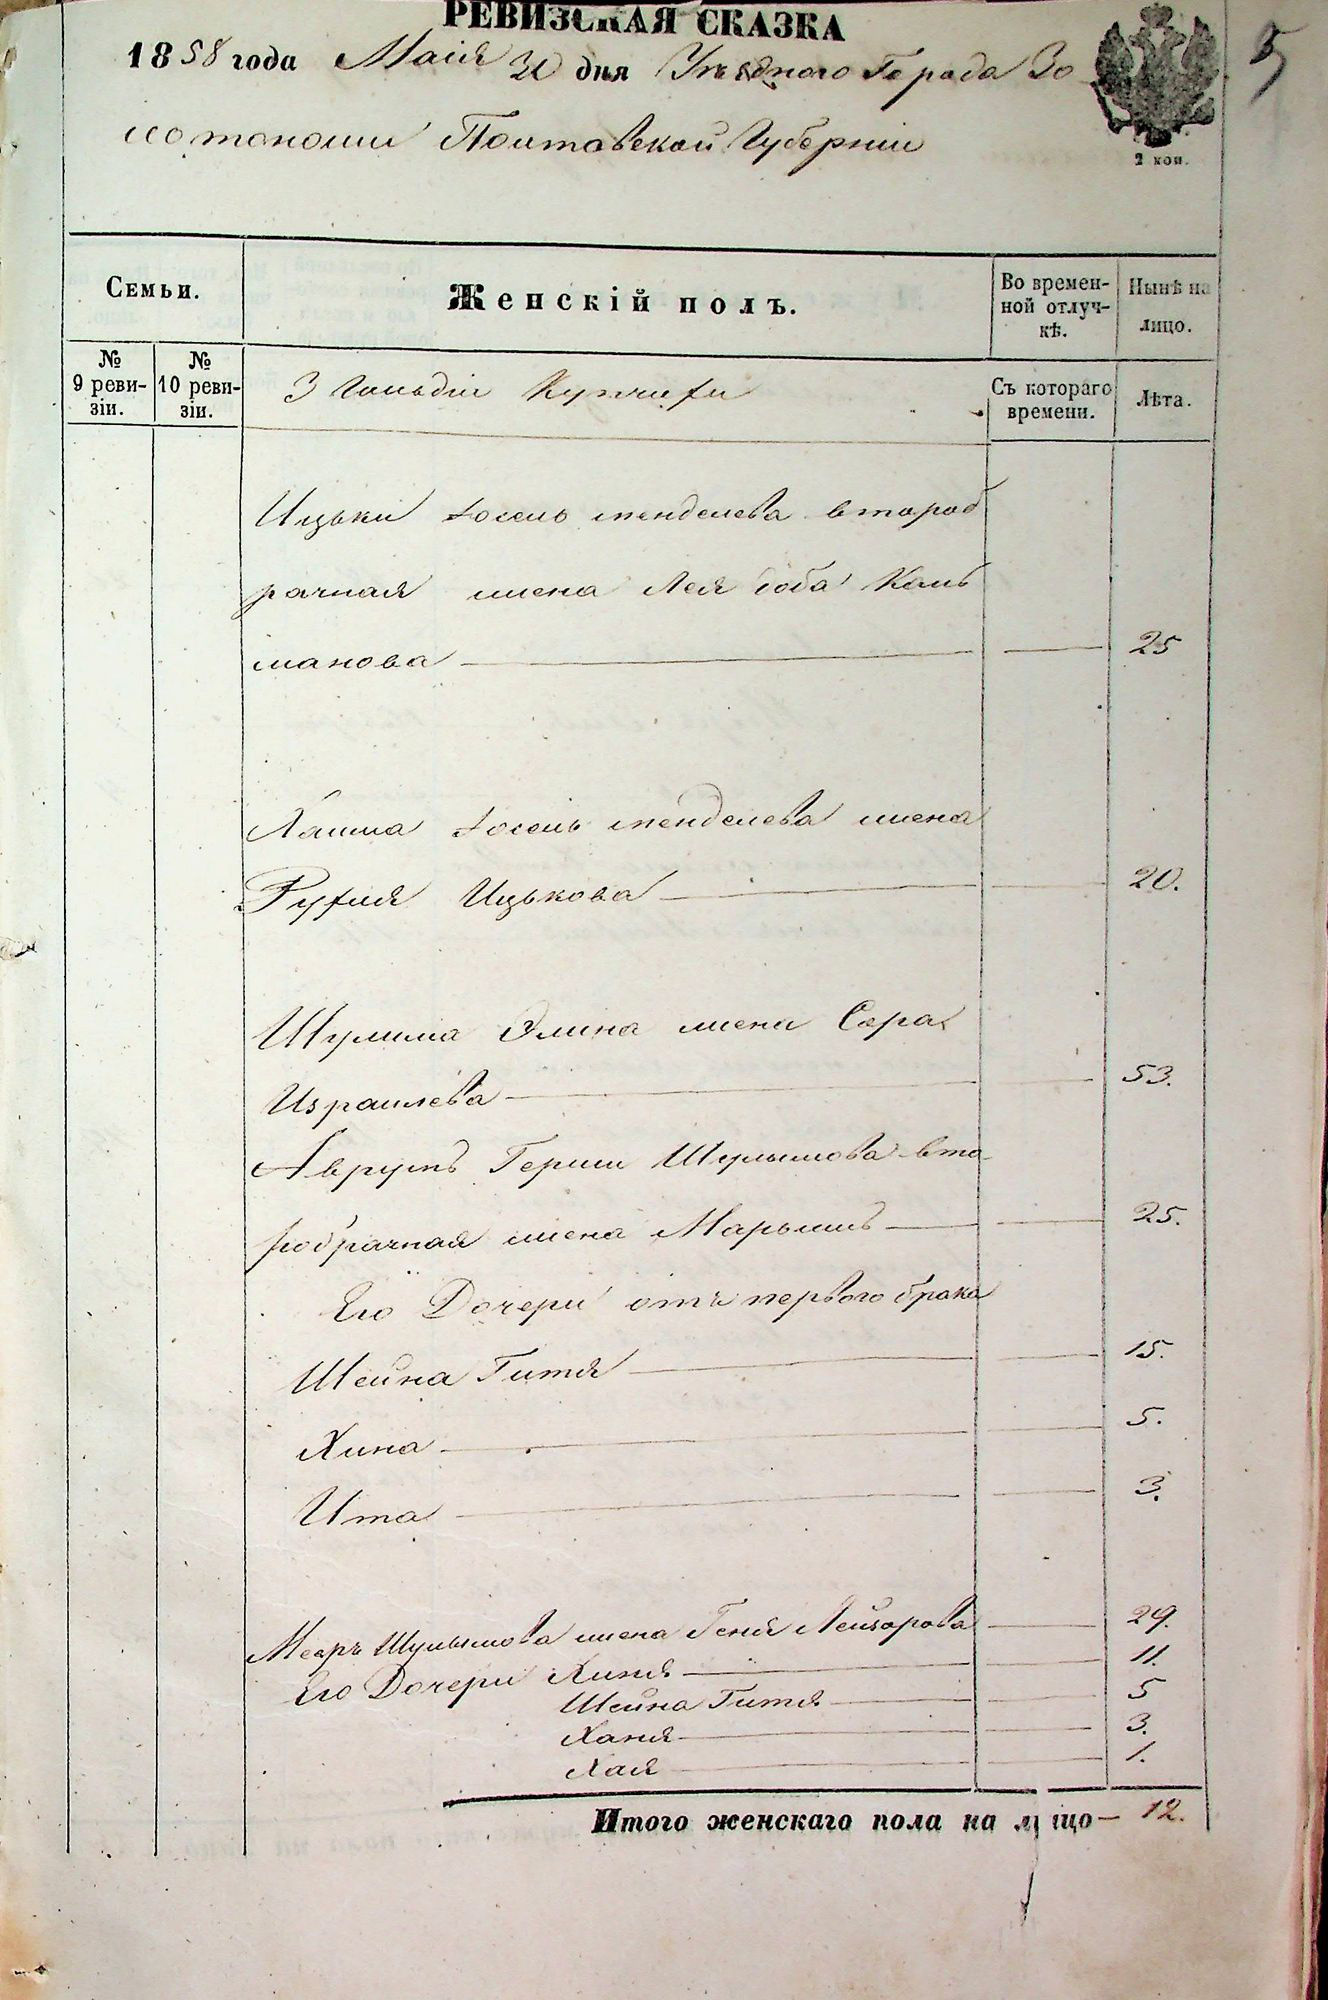 РЕВИЗСКАЯ СКАЗКА
1858 года Маія 30 дня Уѣзднаго Города Зо
лотоноши Полтавской Губерніи
2 коп.
5
Семьи.
Женскій полъ.
Во времен-
ной отлуч-
кѣ.
Нынѣ на
лицо.
№
9 реви-
зіи.
№
10 реви-
зіи.
3 Гильдіи Купчихи
Съ котораго
времени.
Лѣта.
Ицьки Іосель Менделева второб
рачная жена Лея Доба Каль
манова 25
Хаима Іосель Менделева жена
Рухля Ицькова 20.
Шулима Элина жена Сера
Израилева 53.
Аврумъ Герши Шулимова вто
робрачная жена Марьямъ 25.
Его Дочери отъ перваго брака
Шейна Гитля 15.
Хина 5.
Ита 3.
Мееръ Шулимова жена Геня Лейзорова 29.
Его Дочери Хиня 11.
Шейна Гитля 5
Ханя 3.
Хая 1.
Итого женскаго пола на лицо — 12.